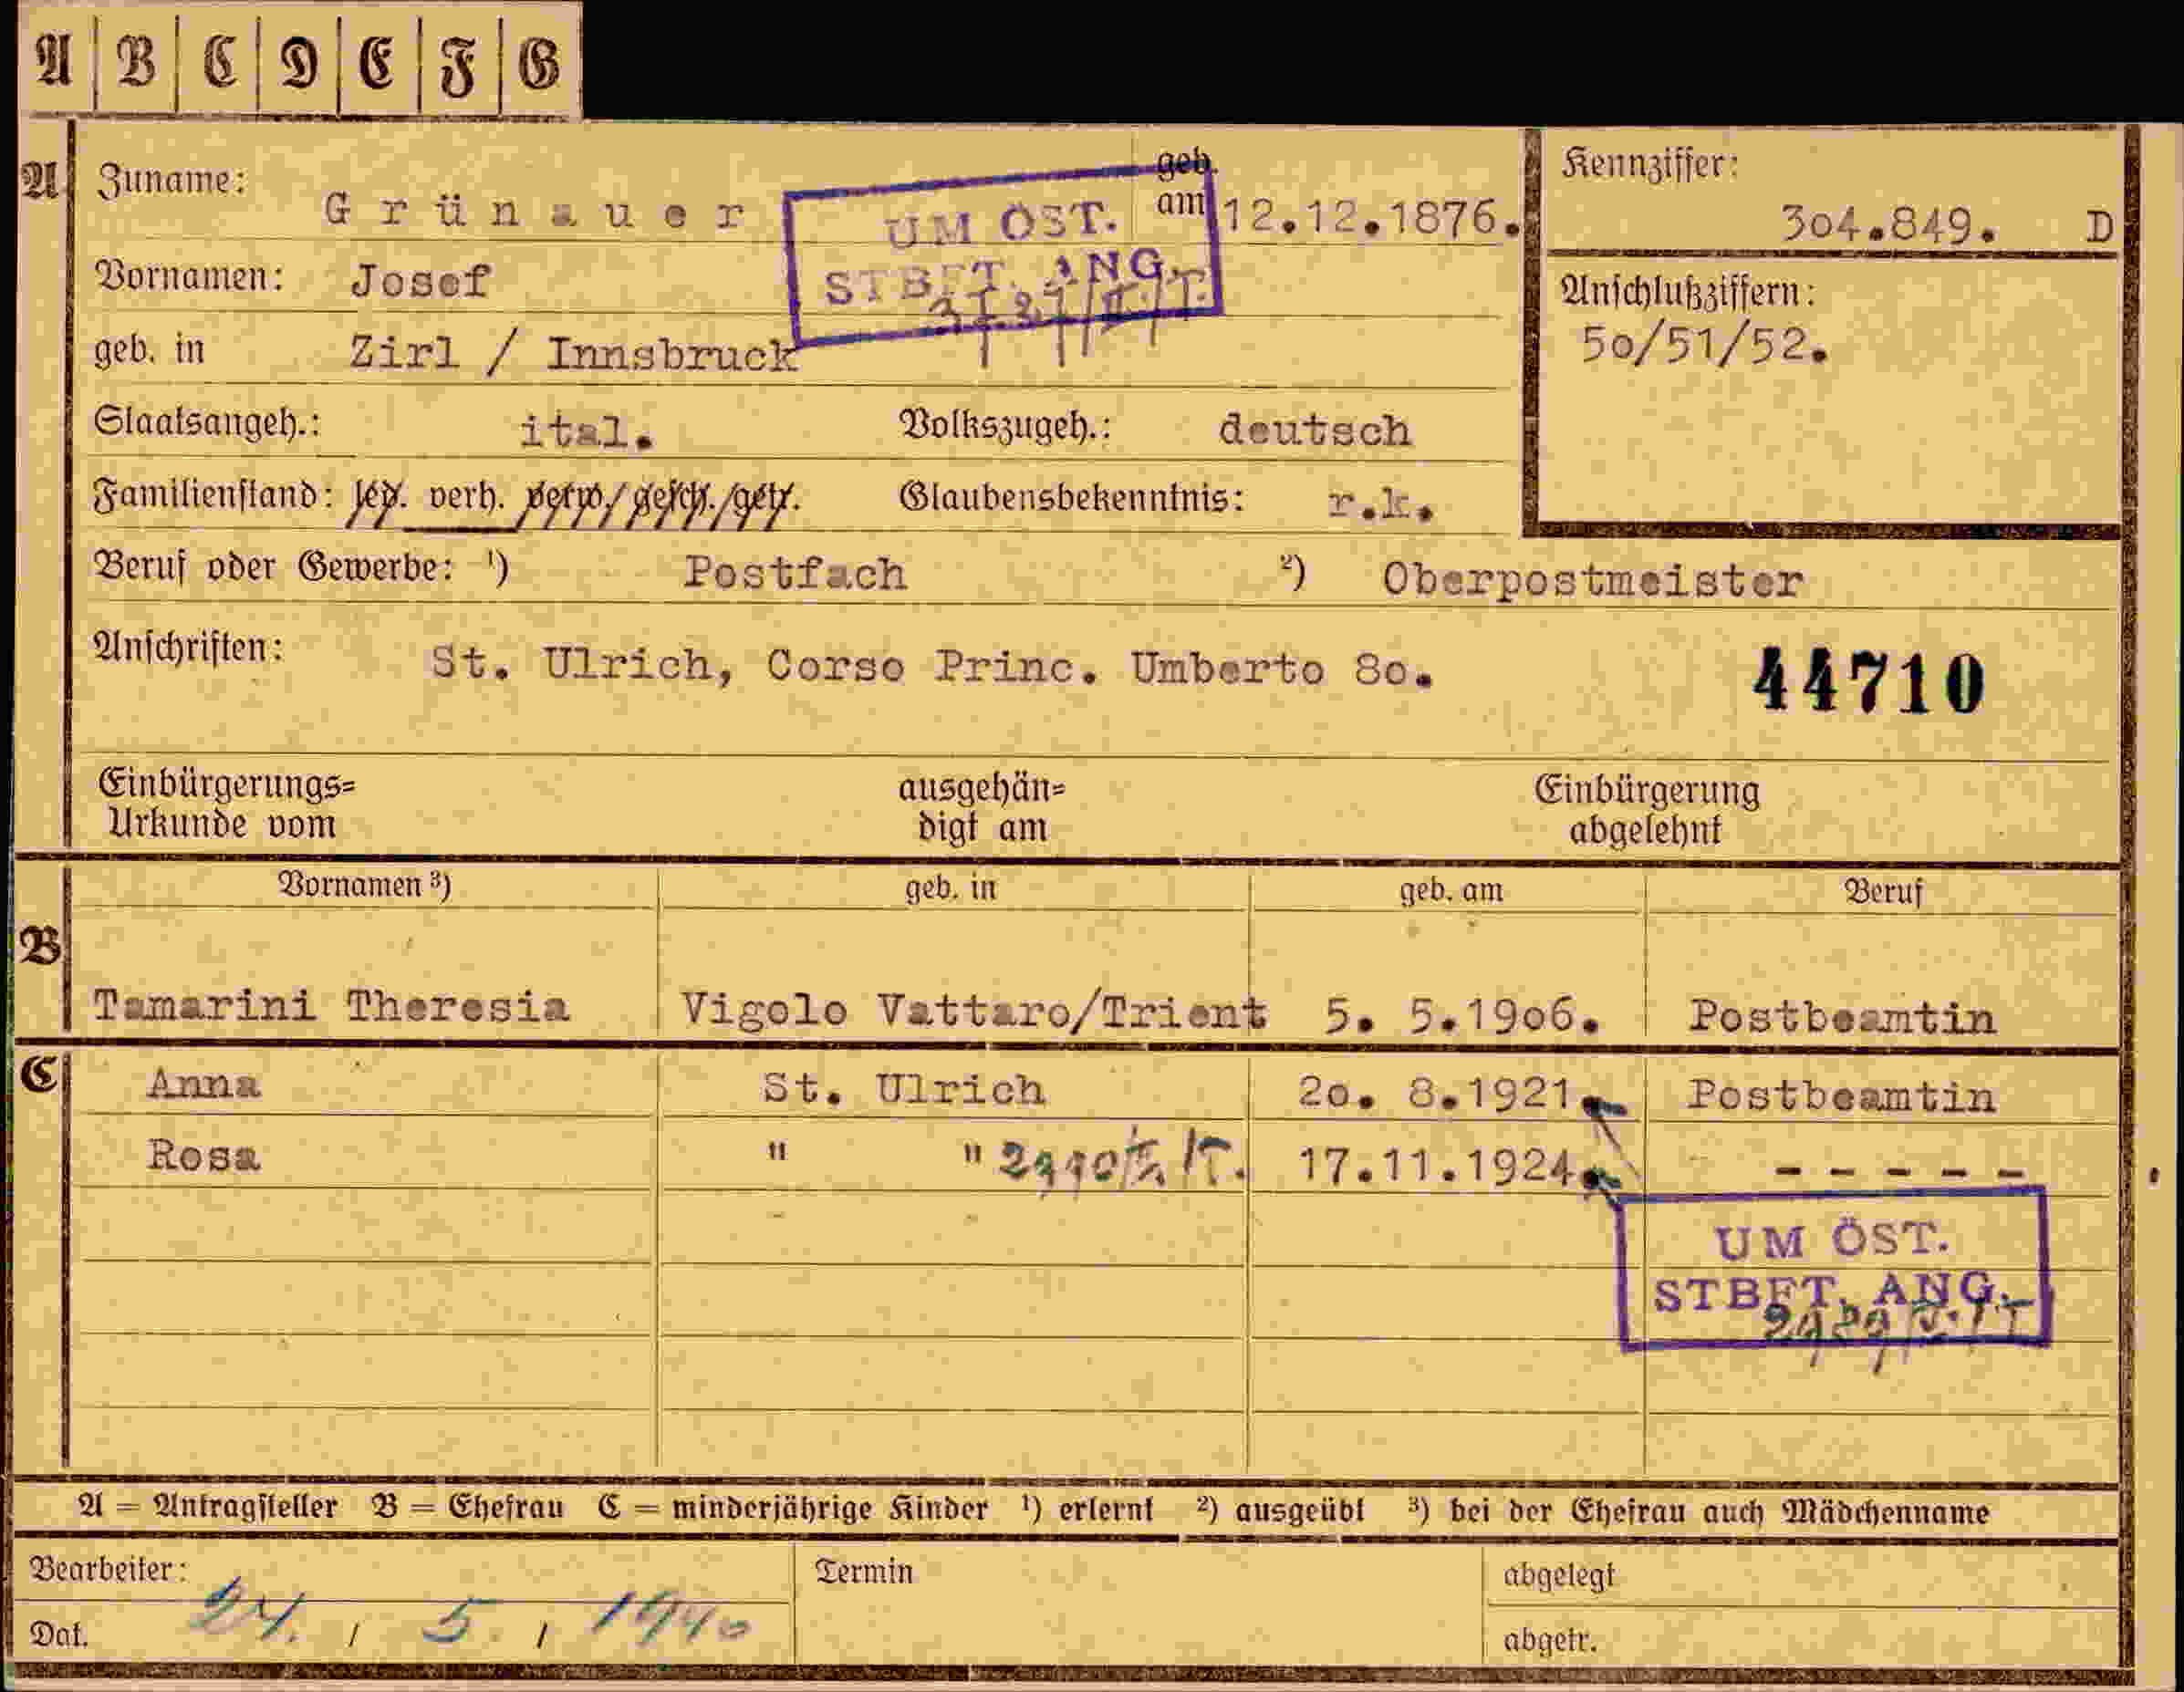 A B C D E F G
A Zuname: Grünauer geb. am 12.12.1876. Kennziffer: 304.849. D
UM ÖST. STBFT. ANG.
Vornamen: Josef
Anschlußziffern: 50/51/52.
geb. in Zirl / Innsbruck
Staatsangeh.: ital. Volkszugeh.: deutsch
Familienstand: led. verh. verw./gesch./getr. Glaubensbekenntnis: r.k.
Beruf oder Gewerbe: ¹) Postfach ²) Oberpostmeister
Anschriften: St. Ulrich, Corso Princ. Umberto 80. 44710
Einbürgerungs= Urkunde vom ausgehän= digt am Einbürgerung abgelehnt
Vornamen ³) geb. in geb. am Beruf
B Tamarini Theresia Vigolo Vattaro/Trient 5. 5.1906. Postbeamtin
C Anna St. Ulrich 20. 8.1921. Postbeamtin
Rosa " " 17.11.1924. - - - - -
UM ÖST.
STBFT. ANG.
A = Antragsteller B = Ehefrau C = minderjährige Kinder ¹) erlernt ²) ausgeübt ³) bei der Ehefrau auch Mädchenname
Bearbeiter: Termin abgelegt
Dat. 24. / 5. / 1940 abgetr.